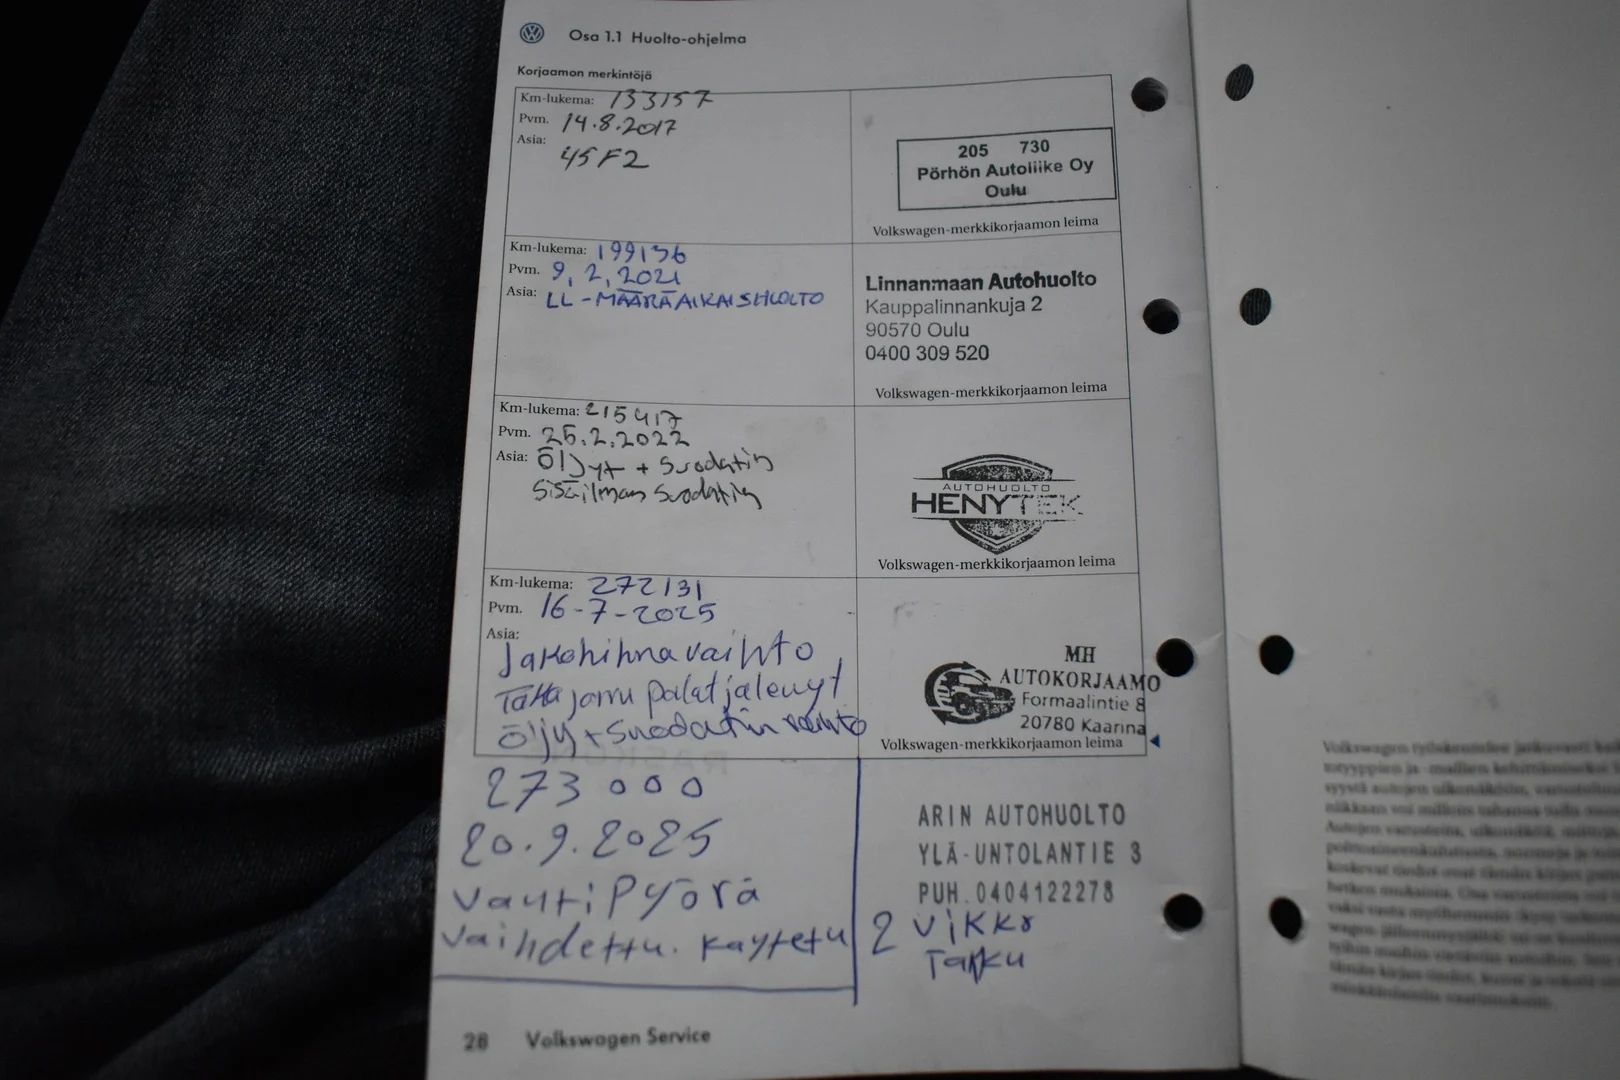 Osa 1.1 Huolto-ohjelma
Korjaamon merkintöjä
Km-lukema: 133157
Pvm. 14.8.2017
Asia:
45F2
205 730
Pörhön Autoliike Oy
Oulu
Volkswagen-merkkikorjaamon leima
Km-lukema: 199136
Pvm. 9,2,2021
Asia: LL-MÄÄRÄAIKAISHUOLTO
Linnanmaan Autohuolto
Kauppalinnankuja 2
90570 Oulu
0400 309 520
Volkswagen-merkkikorjaamon leima
Km-lukema: 215417
Pvm. 26.2.2022
Asia: Öljyt + Suodatin
Sisäilman Suodatin
AUTOHUOLTO
HENYTEK
Volkswagen-merkkikorjaamon leima
Km-lukema: 272131
Pvm. 16-7-2025
Asia:
Jakohihnavaihto
Takajarru palat ja levyt
Öljy+Suodatin vaihto
MH
AUTOKORJAAMO
Formaalintie 8
20780 Kaarina
Volkswagen-merkkikorjaamon leima
273000
20.9.2025
VauhtiPyörä
Vaihdettu. Käytetu
ARIN AUTOHUOLTO
YLÄ-UNTOLANTIE 3
PUH.0404122278
2 Vikko
Takku
28 Volkswagen Service